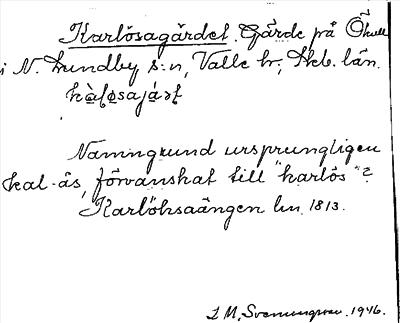 Karlösagärdet. Gärde på Öhult
i N. Lundby s:n, Valle hr, Skb. län.
Namngrund ursprungligen
kal-ås, förvanskat till "karlös"?
Karlöhsaängen lm 1813.
1946.